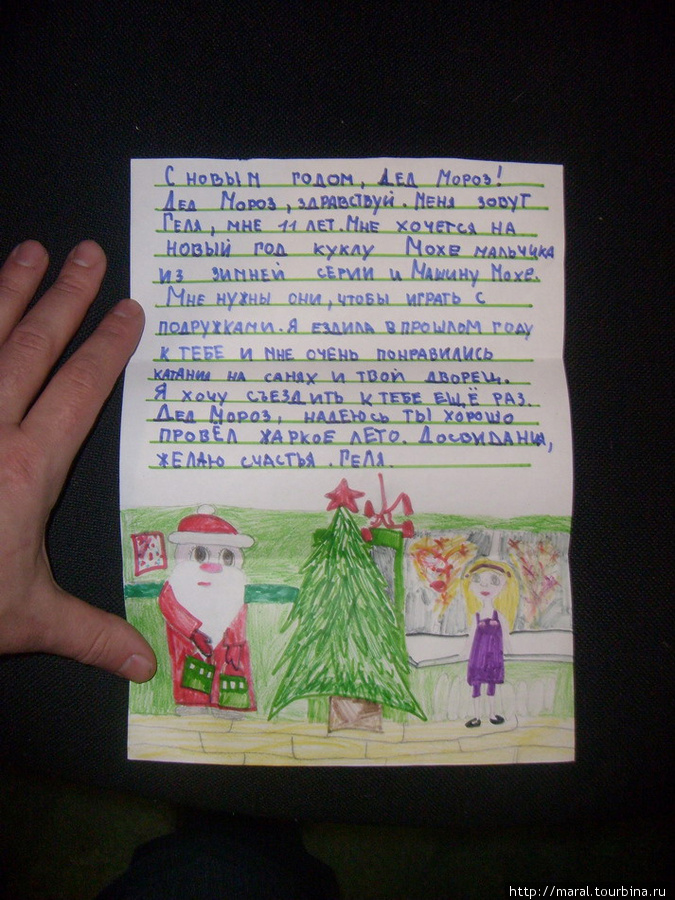 С новым годом, Дед Мороз!
Дед Мороз, здравствуй. Меня зовут
Геля, мне 11 лет. Мне хочется на
новый год куклу Мохе мальчика
из зимней серии и Машину Мохе.
Мне нужны они, чтобы играть с
подружками. Я ездила в прошлом году
к тебе и мне очень понравились
катания на санях и твой дворец.
Я хочу съездить к тебе ещё раз.
Дед Мороз, надеюсь ты хорошо
провёл жаркое лето. Досвидания,
желаю счастья. Геля.
http://maral.tourbina.ru